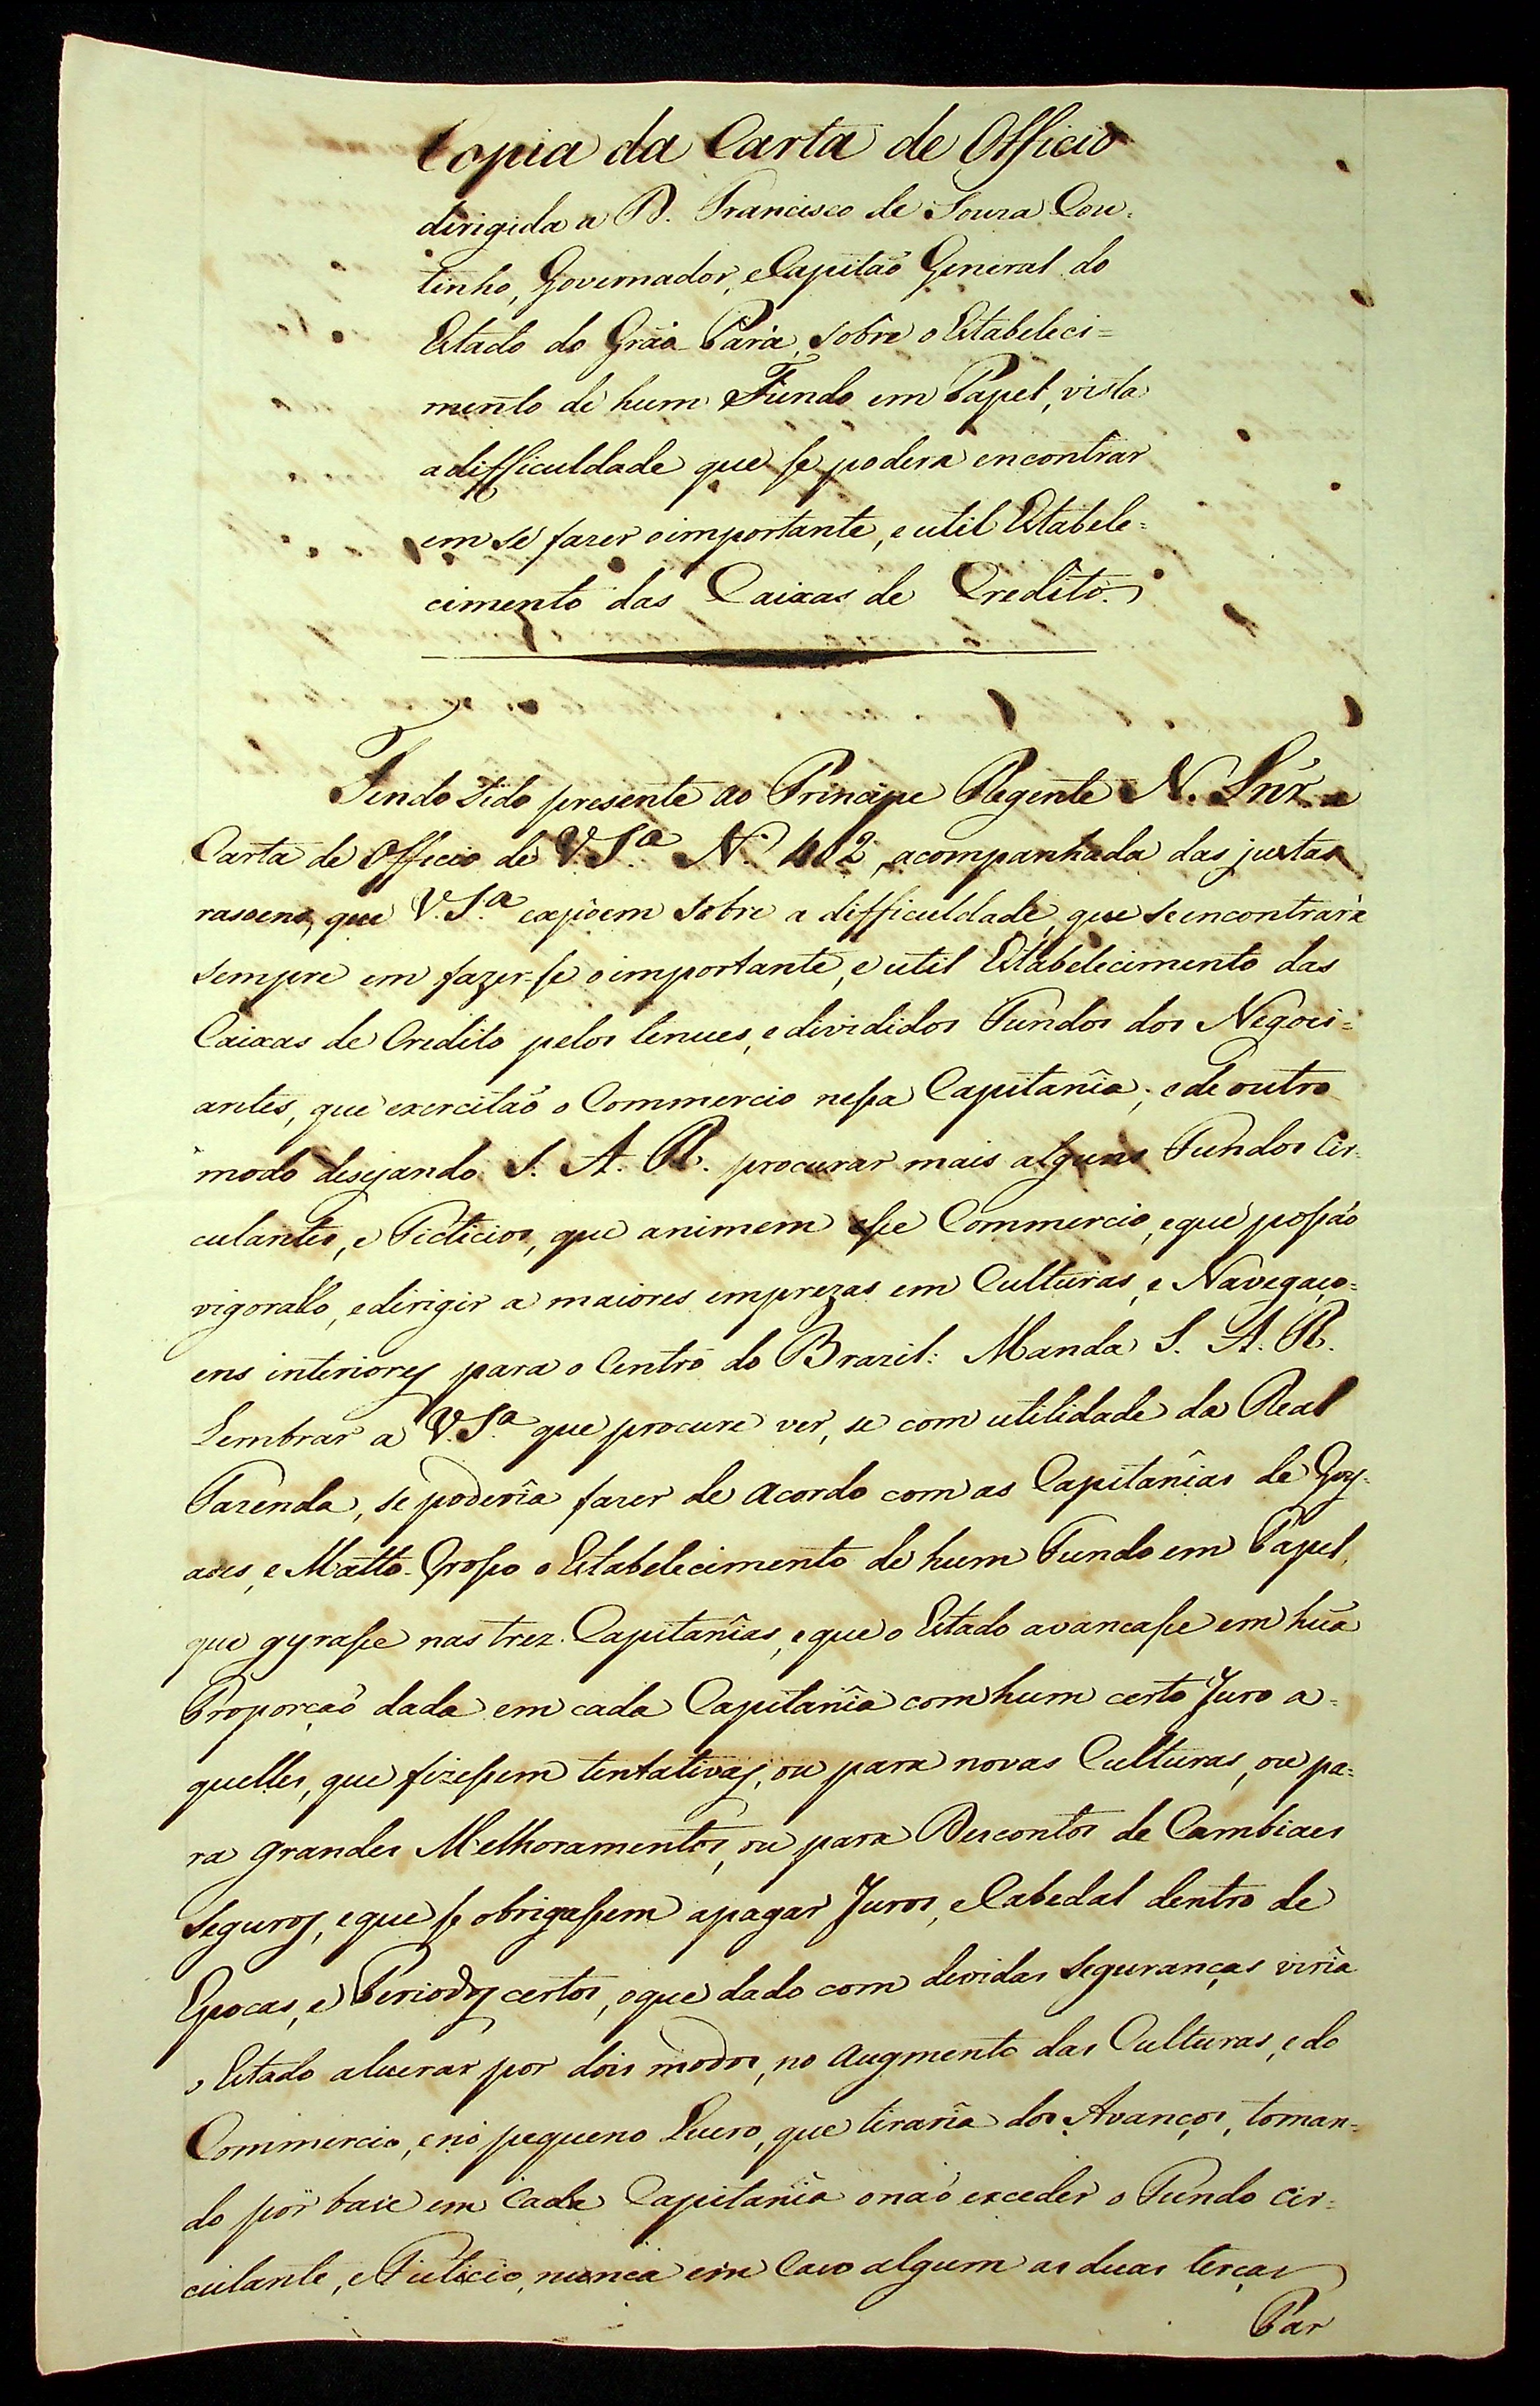 Copia da Carta de Officio
dirigida a D. Francisco de Souza Cou-
tinho, Governador, e Capitaõ General do
Estado do Graõ-Pará, sobre o Estabeleci=
mento de hum Fundo em Papel, vista
a difficuldade que se poderá encontrar
em se fazer o importante, e util Estabele=
cimento das Caixas de Credito.
Tendo sido presente ao Principe Regente N. Snr. a
Carta de Officio de V.S.ª N.º 402, acompanhada das justas
rasoens, que V.S.ª expoem sobre a difficuldade, que se encontrará
sempre em fazer-se o importante, e util Estabelecimento das
Caixas de Credito pelos tenues, e divididos Fundos dos Negoci=
antes, que exercitaõ o Commercio nessa Capitanîa; e de outro
modo desejando S. A. R. procurar mais alguns Fundos Cir-
culantes, e Ficticios, que animem esse Commercio, e que possaõ
vigorallo, e dirigir a maiores emprezas em Culturas, e Navegaço=
ens interiores para o Centro do Brazil: Manda S. A. R.
Lembrar a V.S.ª que procure ver, se com utilidade da Real
Fazenda, se poderîa fazer de acordo com as Capitanîas de Goy-
azes, e Matto-Grosso o Estabelecimento de hum Fundo em Papel,
que gyrasse nas trez Capitanîas, e que o Estado avancasse em huã
Proporçaõ dada em cada Capitanîa com hum certo Juro a=
quelles, que fizessem tentativas, ou para novas Culturas, ou pa=
ra grandes Melhoramentos, ou para Descontos de Cambiaes
seguros, e que se obrigassem a pagar Juros, e Cabedal dentro de
Epocas, e Periodos certos, o que dado com devidas seguranças viria
o Estado a lucrar por dois modos, no augmento das Culturas, e do
Commercio, e no pequeno Lucro, que tirarîa dos Avanços, toman-
do por base em cada Capitanîa o naõ exceder o Fundo Cir=
culante, e Ficticio, nunca em caso algum as duas terças
Par